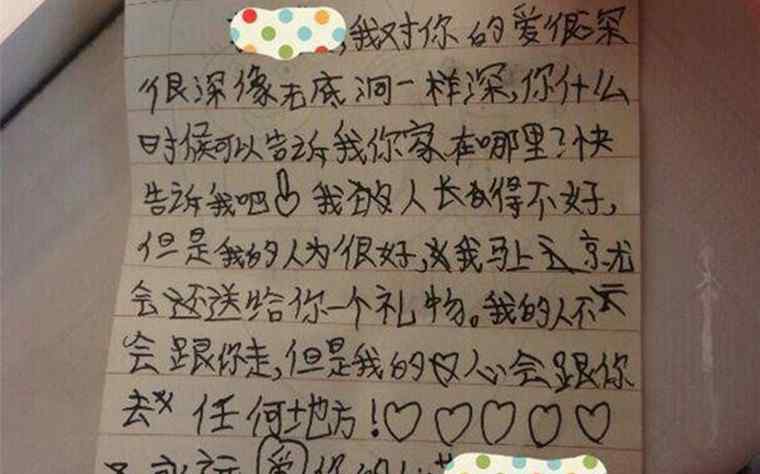 ,我对你的爱很深
很深像无底洞一样深,你什么
时候可以告诉我你家在哪里?快
告诉我吧 我人长得不好,
但是我的人为很好,我马上就
会还送给你一个礼物。我的人不
会跟你走,但是我的心会跟你
去任何地方!♡♡♡♡♡
永远爱你的